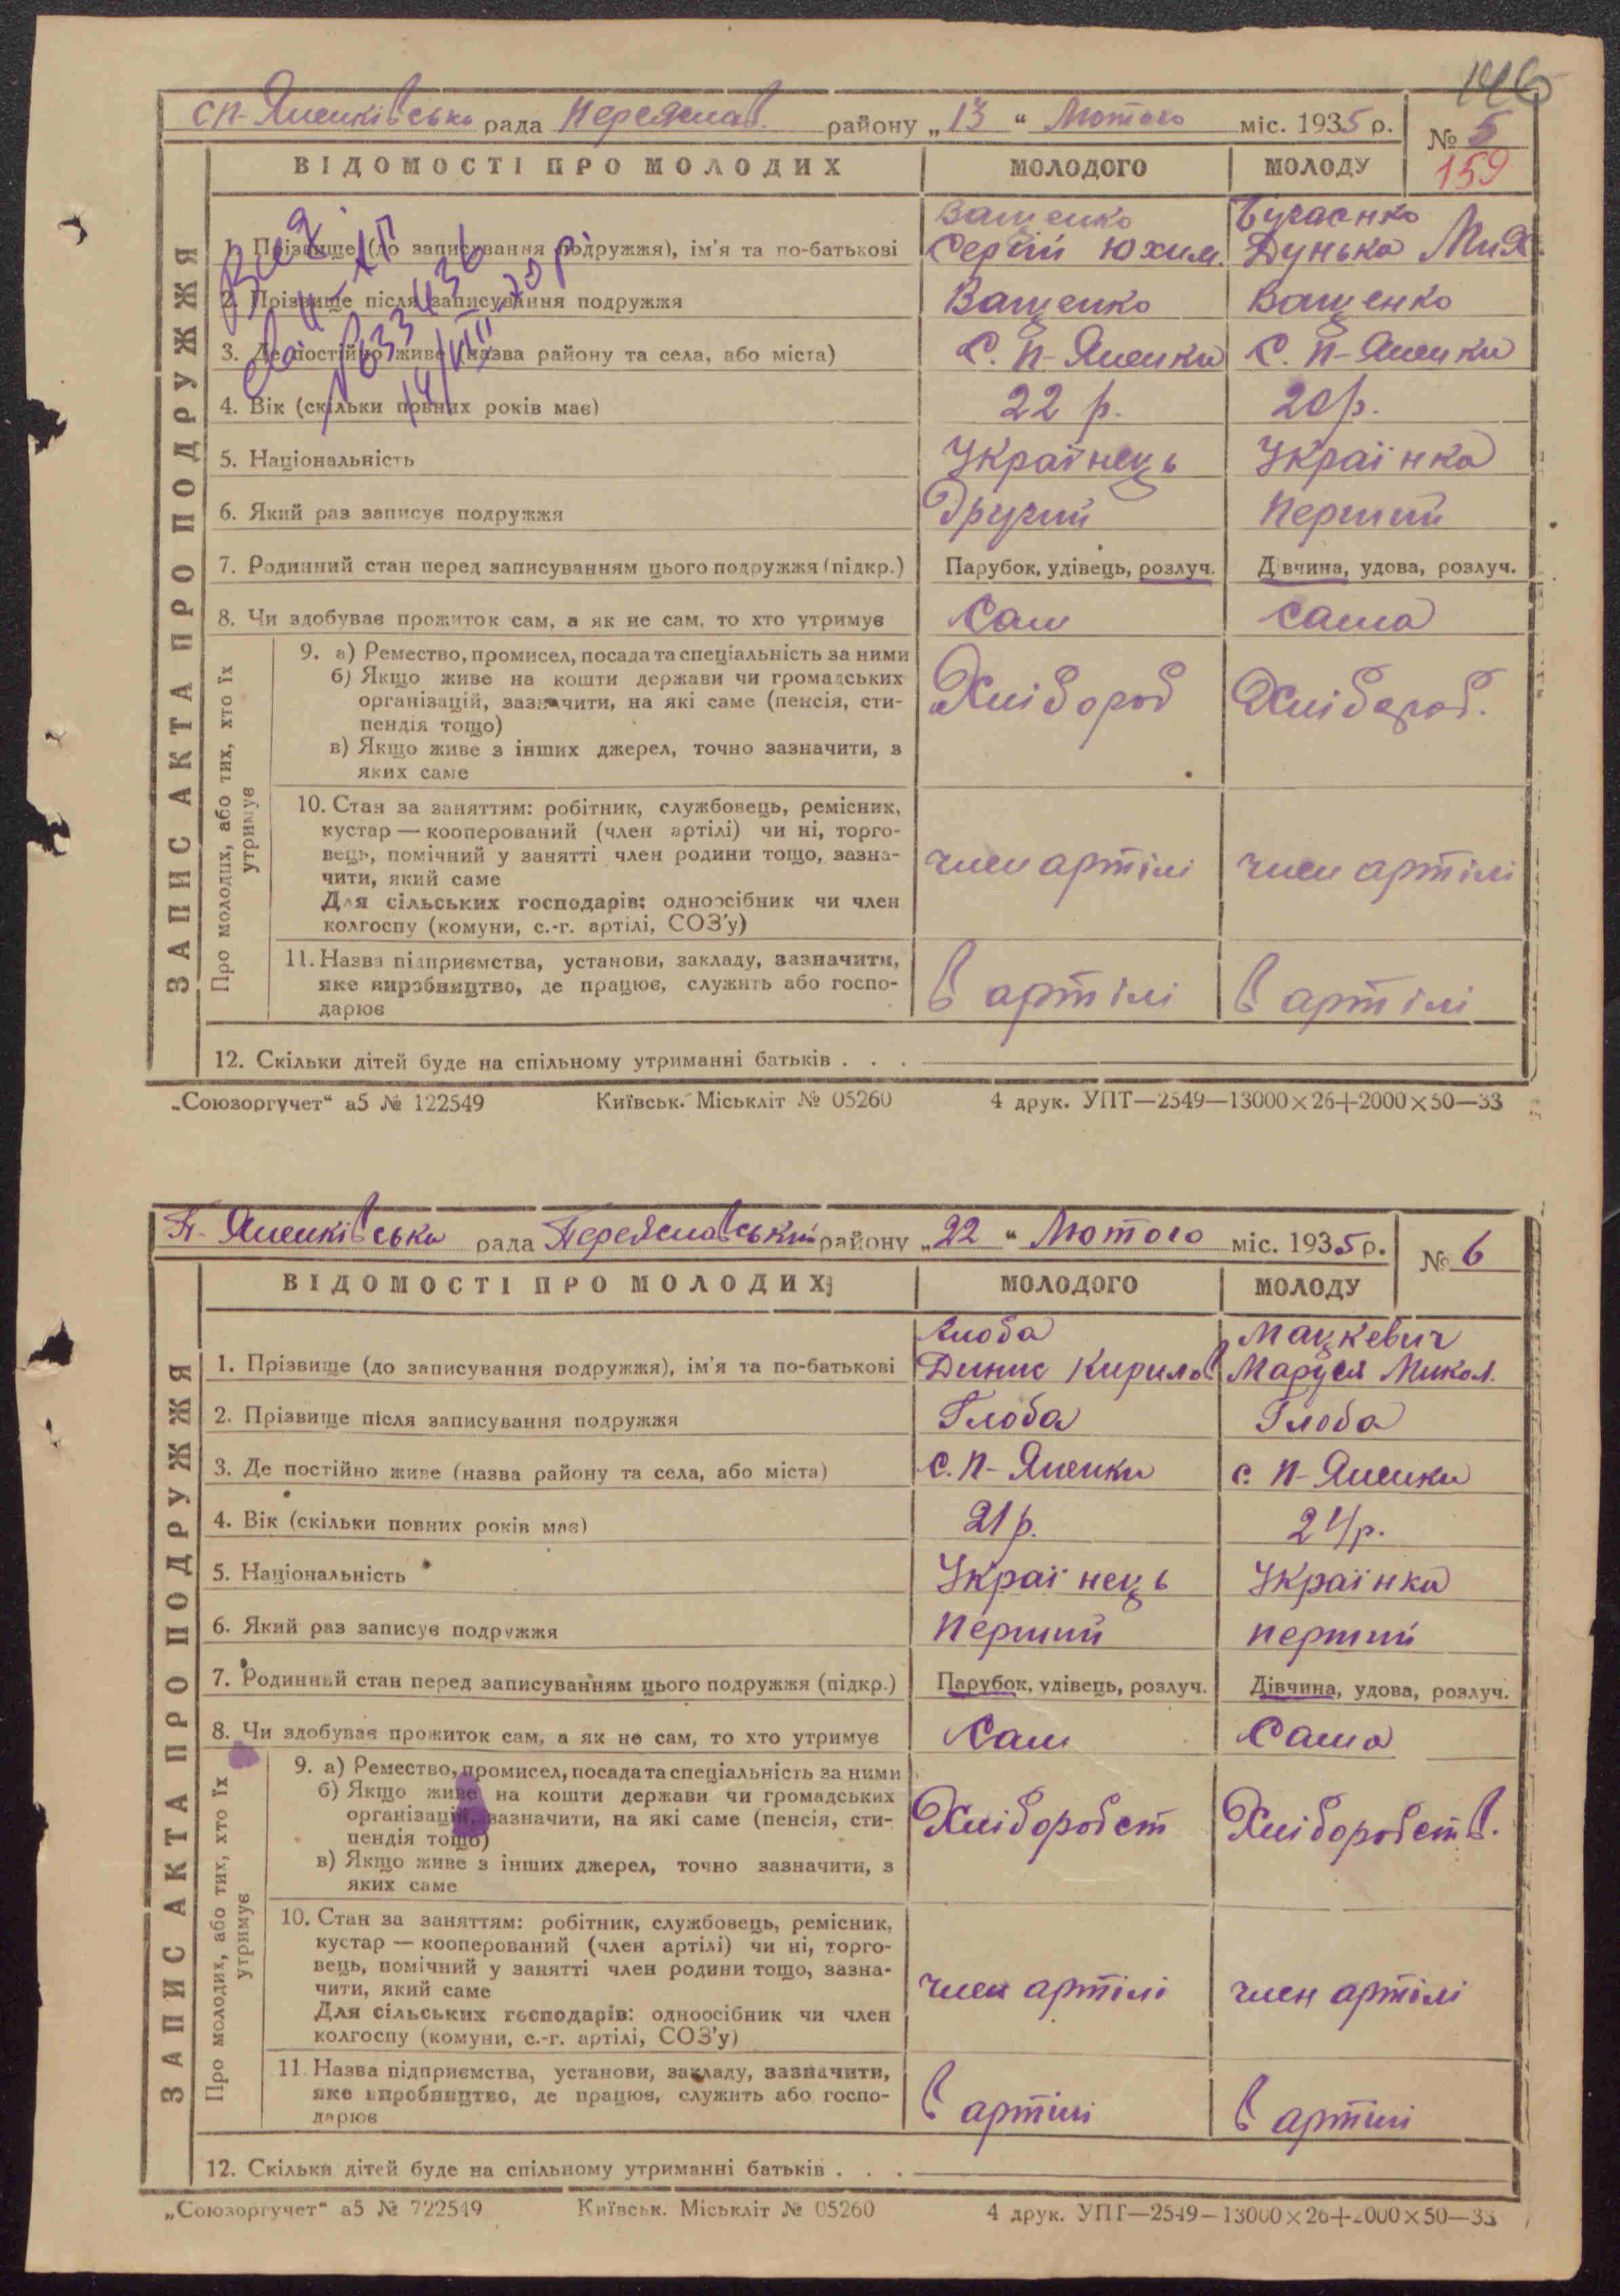 146
сп-Яненківська рада Переяслав. району „13“ Лютого міс. 1935 р. № 5
159
ВІДОМОСТІ ПРО МОЛОДИХ МОЛОДОГО МОЛОДУ
ЗАПИС АКТА ПРО ПОДРУЖЖЯ
Ващенко
1. Прізвище (до записування подружжя), ім'я та по-батькові Сергій Юхим. Дунька Мих
2. Прізвище після записування подружжя Ващенко Ващенко
3. Де постійно живе (назва району та села, або міста) С. П-Яненки С. П-Яненки
14/VIII 70р
4. Вік (скільки повних років має) 22 р. 20 р.
5. Національність Українець Українка
6. Який раз записує подружжя Другий Перший
7. Родинний стан перед записуванням цього подружжя (підкр.) Парубок, удівець, розлуч. Дівчина, удова, розлуч.
8. Чи здобуває прожиток сам, а як не сам, то хто утримує Сам Сама
Про молодих, або тих, хто їх утримує
9. а) Ремество, промисел, посада та спеціальність за ними
б) Якщо живе на кошти держави чи громадських Хлібороб Хлібороб.
організацій, зазначити, на які саме (пенсія, сти-
пендія тощо)
в) Якщо живе з інших джерел, точно зазначити, з
яких саме
10. Стан за заняттям: робітник, службовець, ремісник,
кустар — кооперований (член артілі) чи ні, торго-
вець, помічний у занятті член родини тощо, зазна- член артілі член артілі
чити, який саме
Для сільських господарів: одноосібник чи член
колгоспу (комуни, с.-г. артілі, СОЗ'у)
11. Назва підприємства, установи, закладу, зазначити,
яке виробництво, де працює, служить або госпо- в артілі в артілі
дарює
12. Скільки дітей буде на спільному утриманні батьків . . .
„Союзоргучет“ а5 № 122549 Київськ. Міськліт № 05260 4 друк. УПТ—2549—13000×26+2000×50—33
П-Яненківська рада Переяславський району „22“ Лютого міс. 1935 р. № 6
ВІДОМОСТІ ПРО МОЛОДИХ МОЛОДОГО МОЛОДУ
ЗАПИС АКТА ПРО ПОДРУЖЖЯ
Глоба Мацкевич
1. Прізвище (до записування подружжя), ім'я та по-батькові Динис Кирилов Маруся Микол.
2. Прізвище після записування подружжя Глоба Глоба
3. Де постійно живе (назва району та села, або міста) С. П-Яненки с. П-Яненки
4. Вік (скільки повних років має) 21 р. 21 р.
5. Національність Українець Українка
6. Який раз записує подружжя Перший перший
7. Родинний стан перед записуванням цього подружжя (підкр.) Парубок, удівець, розлуч. Дівчина, удова, розлуч.
8. Чи здобуває прожиток сам, а як не сам, то хто утримує Сам Сама
Про молодих, або тих, хто їх утримує
9. а) Ремество, промисел, посада та спеціальність за ними
б) Якщо живе на кошти держави чи громадських
організацій, зазначити, на які саме (пенсія, сти- Хліборобст Хліборобств.
пендія тощо)
в) Якщо живе з інших джерел, точно зазначити, з
яких саме
10. Стан за заняттям: робітник, службовець, ремісник,
кустар — кооперований (член артілі) чи ні, торго-
вець, помічний у занятті член родини тощо, зазна-
чити, який саме член артілі член артілі
Для сільських господарів: одноосібник чи член
колгоспу (комуни, с.-г. артілі, СОЗ'у)
11. Назва підприємства, установи, закладу, зазначити,
яке виробництво, де працює, служить або госпо- в артілі в артілі
дарює
12. Скільки дітей буде на спільному утриманні батьків . . .
„Союзоргучет“ а5 № 722549 Київськ. Міськліт № 05260 4 друк. УПТ—2549—13000×26+2000×50—33